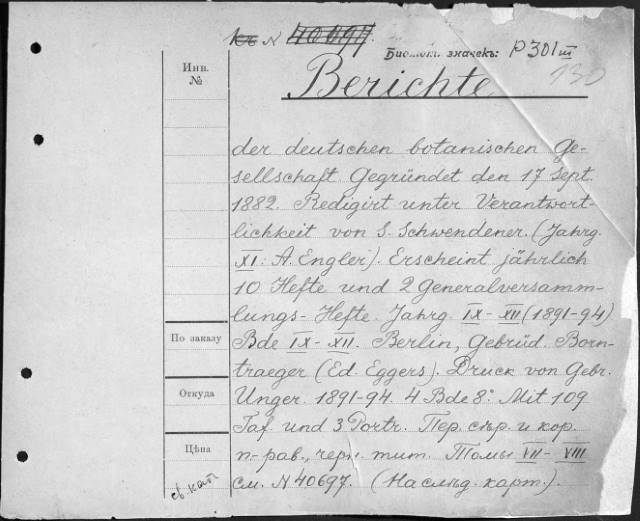 къ N 40697.
Библіот. значекъ: P301III
130
Инв.
№
Berichte
der deutschen botanischen Ge-
sellschaft. Gegründet den 17 Sept.
1882. Redigirt unter Verantwort-
lichkeit von S. Schwendener. (Jahrg.
XI: A. Engler). Erscheint jährlich
10 Hefte und 2 Generalversamm-
lungs-Hefte. Jahrg. IX-XII (1891-94)
По заказу
Bde IX-XII. Berlin, Gebrüd. Born-
traeger (Ed. Eggers). Druck von Gebr.
Откуда
Unger. 1891-94. 4 Bde 8°. Mit 109
Taf. und 3 Portr. Пер. сѣр. и кор.
Цѣна
п-рав., черн. тит. Томы VII-VIII
см. N 40697. (На слѣд. карт.).
св. кат